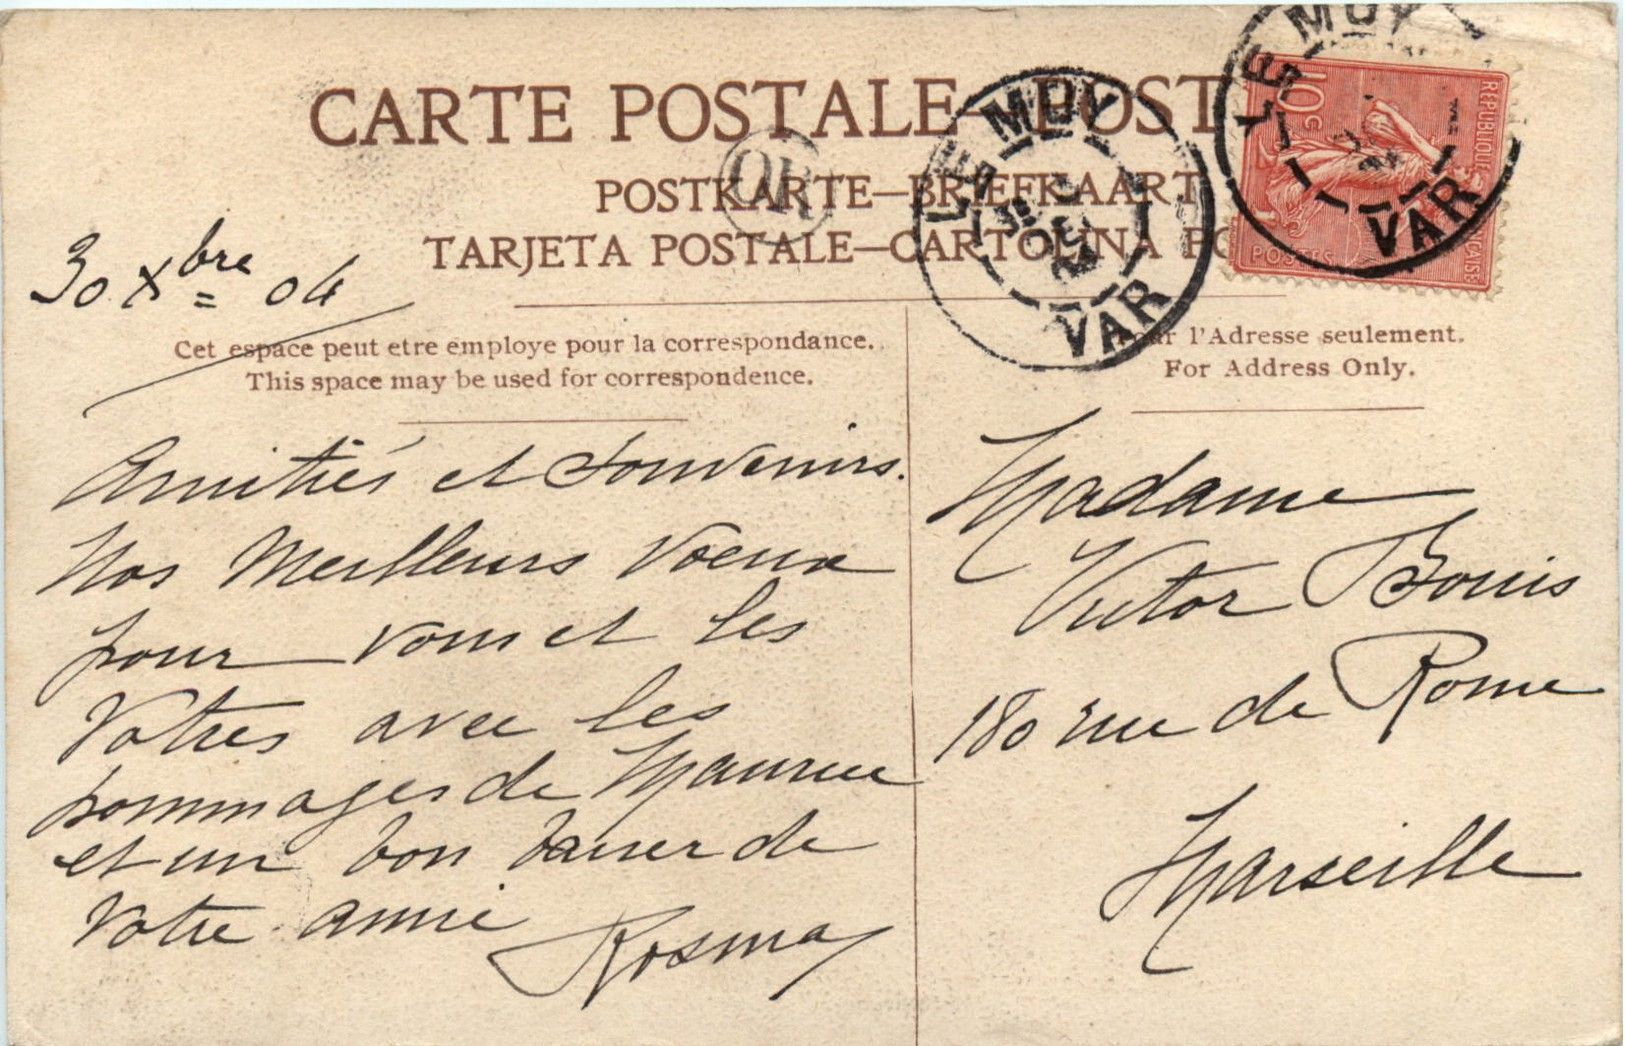 CARTE POSTALE—POST
POSTKARTE—BRIEFKAART
TARJETA POSTALE—CARTOLINA PO
OR
LE MUY
VAR
LE MUY
VAR
10c
RÉPUBLIQUE
FRANÇAISE
POSTES
30 Xbre 04
Cet espace peut etre employe pour la correspondance.
This space may be used for correspondence.
Pour l'Adresse seulement.
For Address Only.
Amitiés et souvenirs.
Nos Meilleurs Voeux
pour vous et les
Votres avec les
hommages de Maurice
et un bon baiser de
Votre amie
Rosma
Madame
Victor Bouis
180 rue de Rome
Marseille